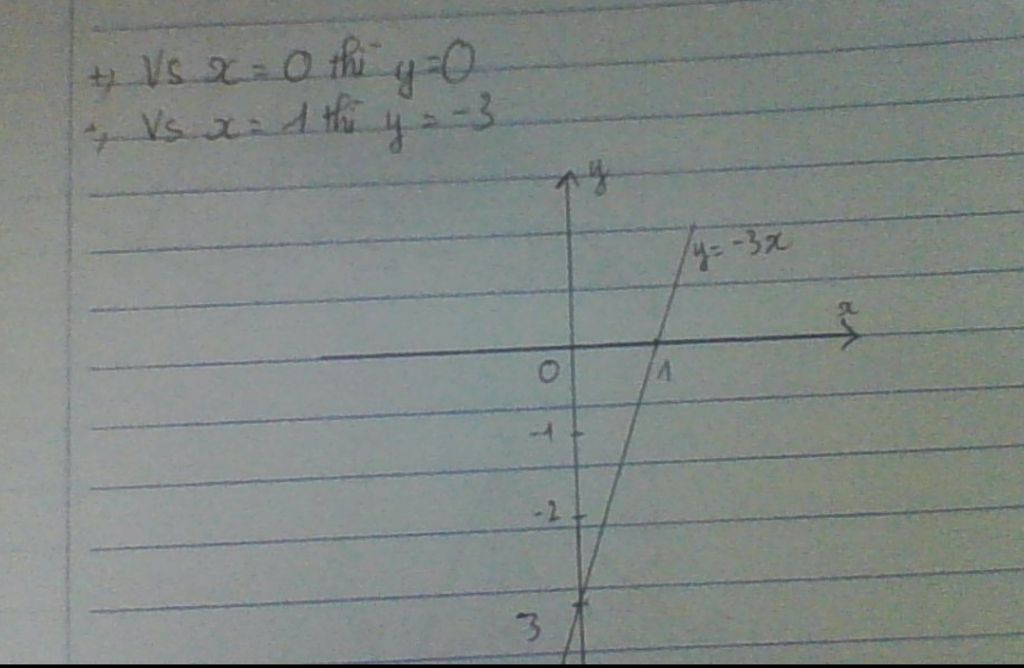 +, Vs x = 0 thì y = 0
+, Vs x = 1 thì y = -3
y
y = -3x
x
0
1
-1
-2
3